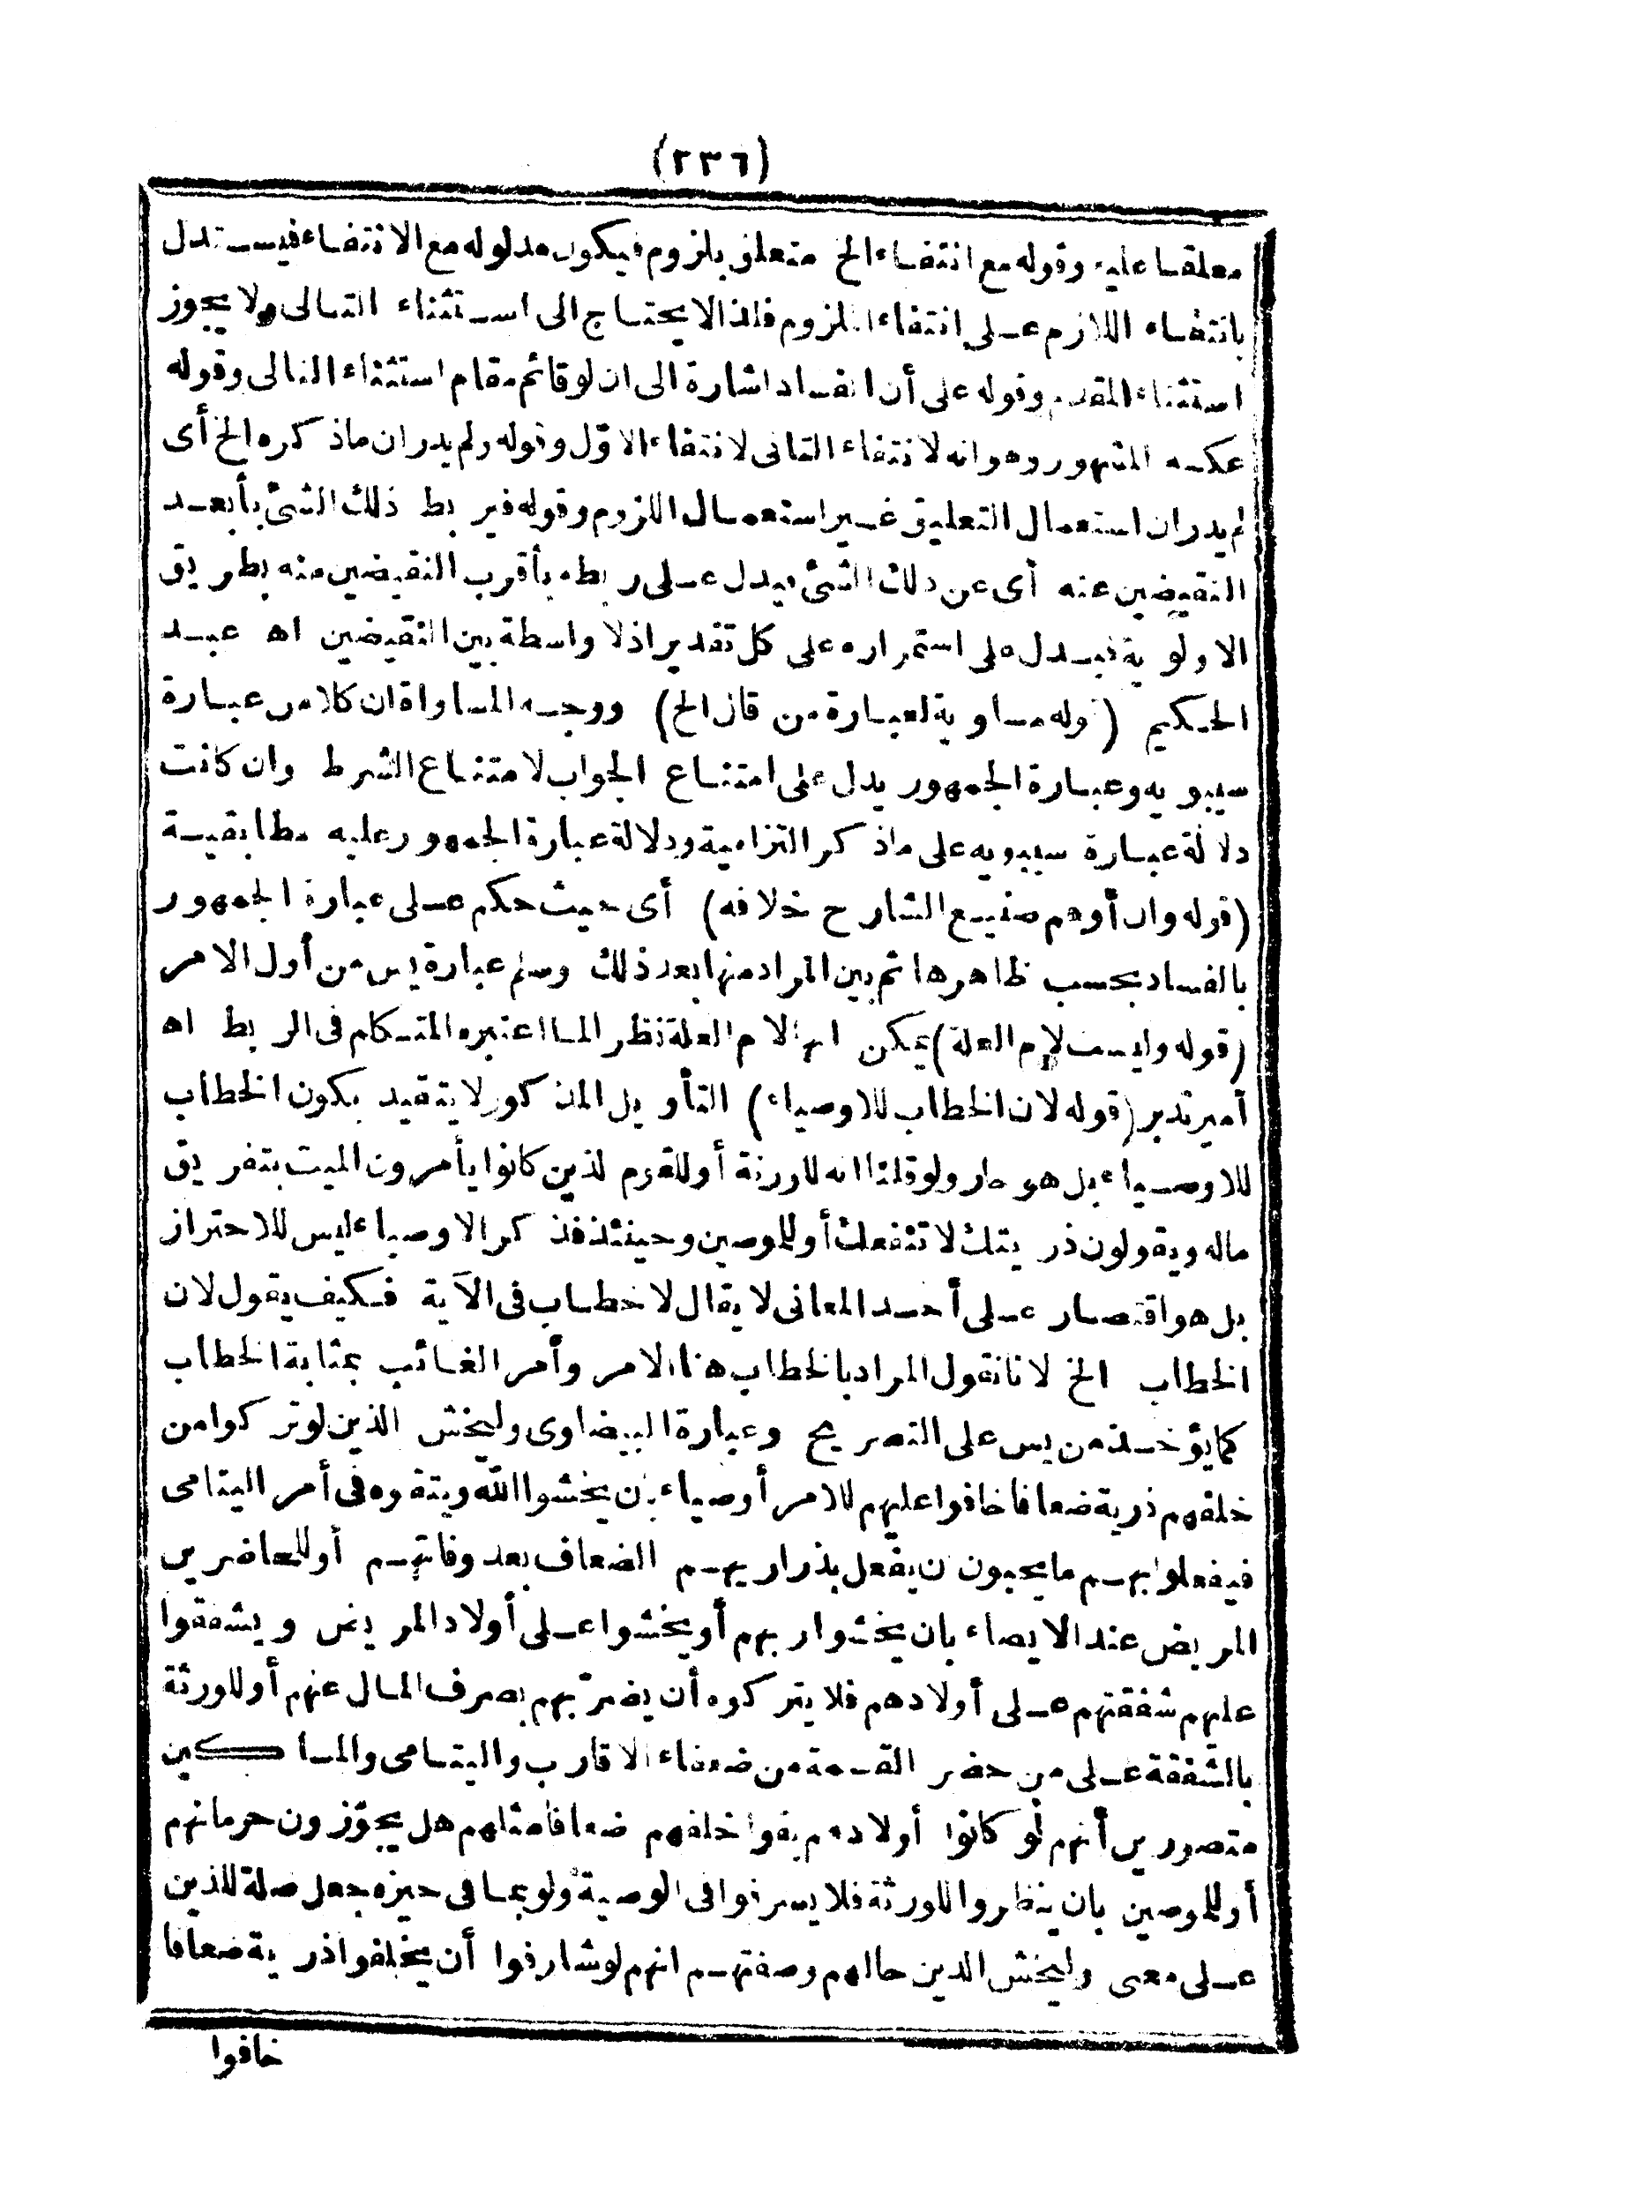 (٢٣٦)
معلقا عليه وقوله مع انتفاء الخ متعلق بلزوم فيكون مدلوله مع الانتفاء فيستدل
بانتفاء اللازم على انتفاء الملزوم فلذا لا يحتاج الى استثناء التالى ولا يجوز
استثناء المقدم وقوله على أن الفساد اشارة الى ان لو قائم مقام استثناء التالى وقوله
عكسه المشهور وهو انه لانتفاء الثانى لانتفاء الاوّل وقوله ولم يدران ماذكره الخ أى
لم يدران استعمال التعليق غير استعمال اللزوم وقوله فير بط ذلك الشئ بأبعد
النقيضين عنه أى عن ذلك الشئ فيدل على ربطه بأقرب النقيضين منه بطريق
الاولوية فيدل على استمراره على كل تقدير اذ لا واسطة بين النقيضين اه عبد
الحكيم (قوله مساوية لعبارة من قال الخ) ووجه المساواة ان كلا من عبارة
سيبويه وعبارة الجمهور يدل على امتناع الجواب لامتناع الشرط وان كانت
دلالة عبارة سيبويه على ماذكر التزامية ودلالة عبارة الجمهور عليه مطابقية
(قوله وان أوهم صنيع الشارح خلافه) أى حيث حكم على عبارة الجمهور
بالفساد بحسب ظاهرها ثم بين المراد منها بعد ذلك وسلم عبارة يس من أول الامر
(قوله وليست لام العلة) يمكن انها لام العلة نظرا لما اعتبره المتكلم فى الربط اه
أمير تدبر (قوله لان الخطاب للاوصياء) التأويل المذكور لا يتقيد بكون الخطاب
للاوصياء بل هو جار ولو قلنا انه للورثة أو للقوم الذين كانوا يأمرون الميت بتفريق
ماله ويقولون ذريتك لا تنفعك أو للموصين وحينئذ فذكر الاوصياء ليس للاحتراز
بل هو اقتصار على أحد المعانى لا يقال لا خطاب فى الآية فكيف يقول لان
الخطاب الخ لانا نقول المراد بالخطاب هنا الامر وأمر الغائب بمثابة الخطاب
كما يؤخذ من يس على التصريح وعبارة البيضاوى وليخش الذين لو تركوا من
خلفهم ذرية ضعافا خافوا عليهم للامر أوصياء بأن يخشوا الله ويتقوه فى أمر اليتامى
فيفعلوا بهم ما يحبون أن يفعل بذراريهم الضعاف بعد وفاتهم أو للحاضرين
المريض عند الايصاء بان يخشوا ربهم أو يخشوا على أولاد المريض ويشفقوا
عليهم شفقتهم على أولادهم فلا يتركوه أن يضرّ بهم بصرف المال عنهم أو للورثة
بالشفقة على من حضر القسمة من ضعفاء الاقارب واليتامى والمساكين
متصورين أنهم لو كانوا أولادهم بقوا خلفهم ضعافا مثلهم هل يجوّزون حرمانهم
أو للموصين بان ينظروا للورثة فلا يسرفوا فى الوصية ولو بما فى حيزه جعل صلة للذين
على معنى وليخش الذين حالهم وصفتهم انهم لو شارفوا أن يخلفوا ذرية ضعافا
خافوا